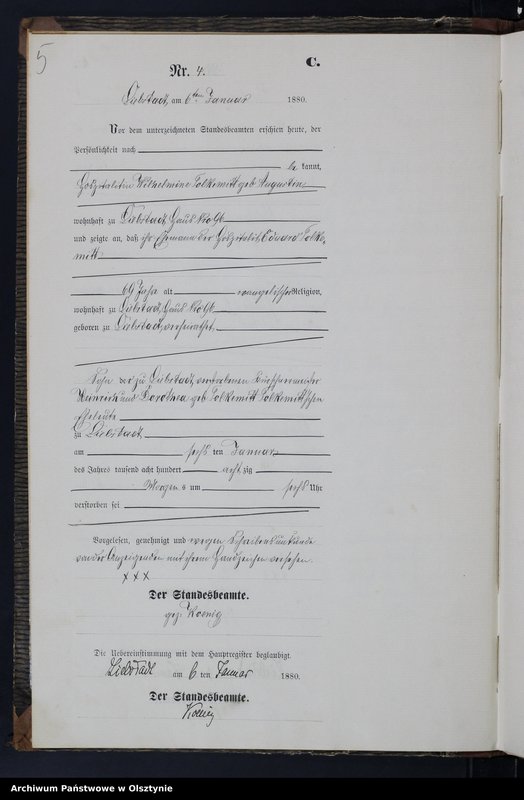 5
C.
Nr. 4.
Liebstadt, am 6ten Januar 1880.
Vor dem unterzeichneten Standesbeamten erschien heute, der
Persönlichkeit nach
be kannt,
Hospitalitin Wilhelmine Tolkemitt geb Augustin
wohnhaft zu Liebstadt, Haus No
und zeigte an, daß ihr Ehemann der Hospitalit Eduard Tolke-
mitt
69 Jahr alt evangelischer Religion,
wohnhaft zu Liebstadt, Haus No
geboren zu Liebstadt, verheirathet,
Sohn der zu Liebstadt, verstorbenen
Heinrich und Dorothea geb Tolkemitt Tolkemitt'schen
Eheleute
zu Liebstadt,
am sechs ten Januar
des Jahres tausend acht hundert acht zig
Morgen s um sechs Uhr
verstorben sei
Vorgelesen, genehmigt und wegen Schreibensunkunde
von der Anzeigenden mit ihrem Handzeichen versehen.
x x x
Der Standesbeamte.
gez: Koenig
Die Uebereinstimmung mit dem Hauptregister beglaubigt.
Liebstadt am 6 ten Januar 1880.
Der Standesbeamte.
Koenig
Archiwum Państwowe w Olsztynie